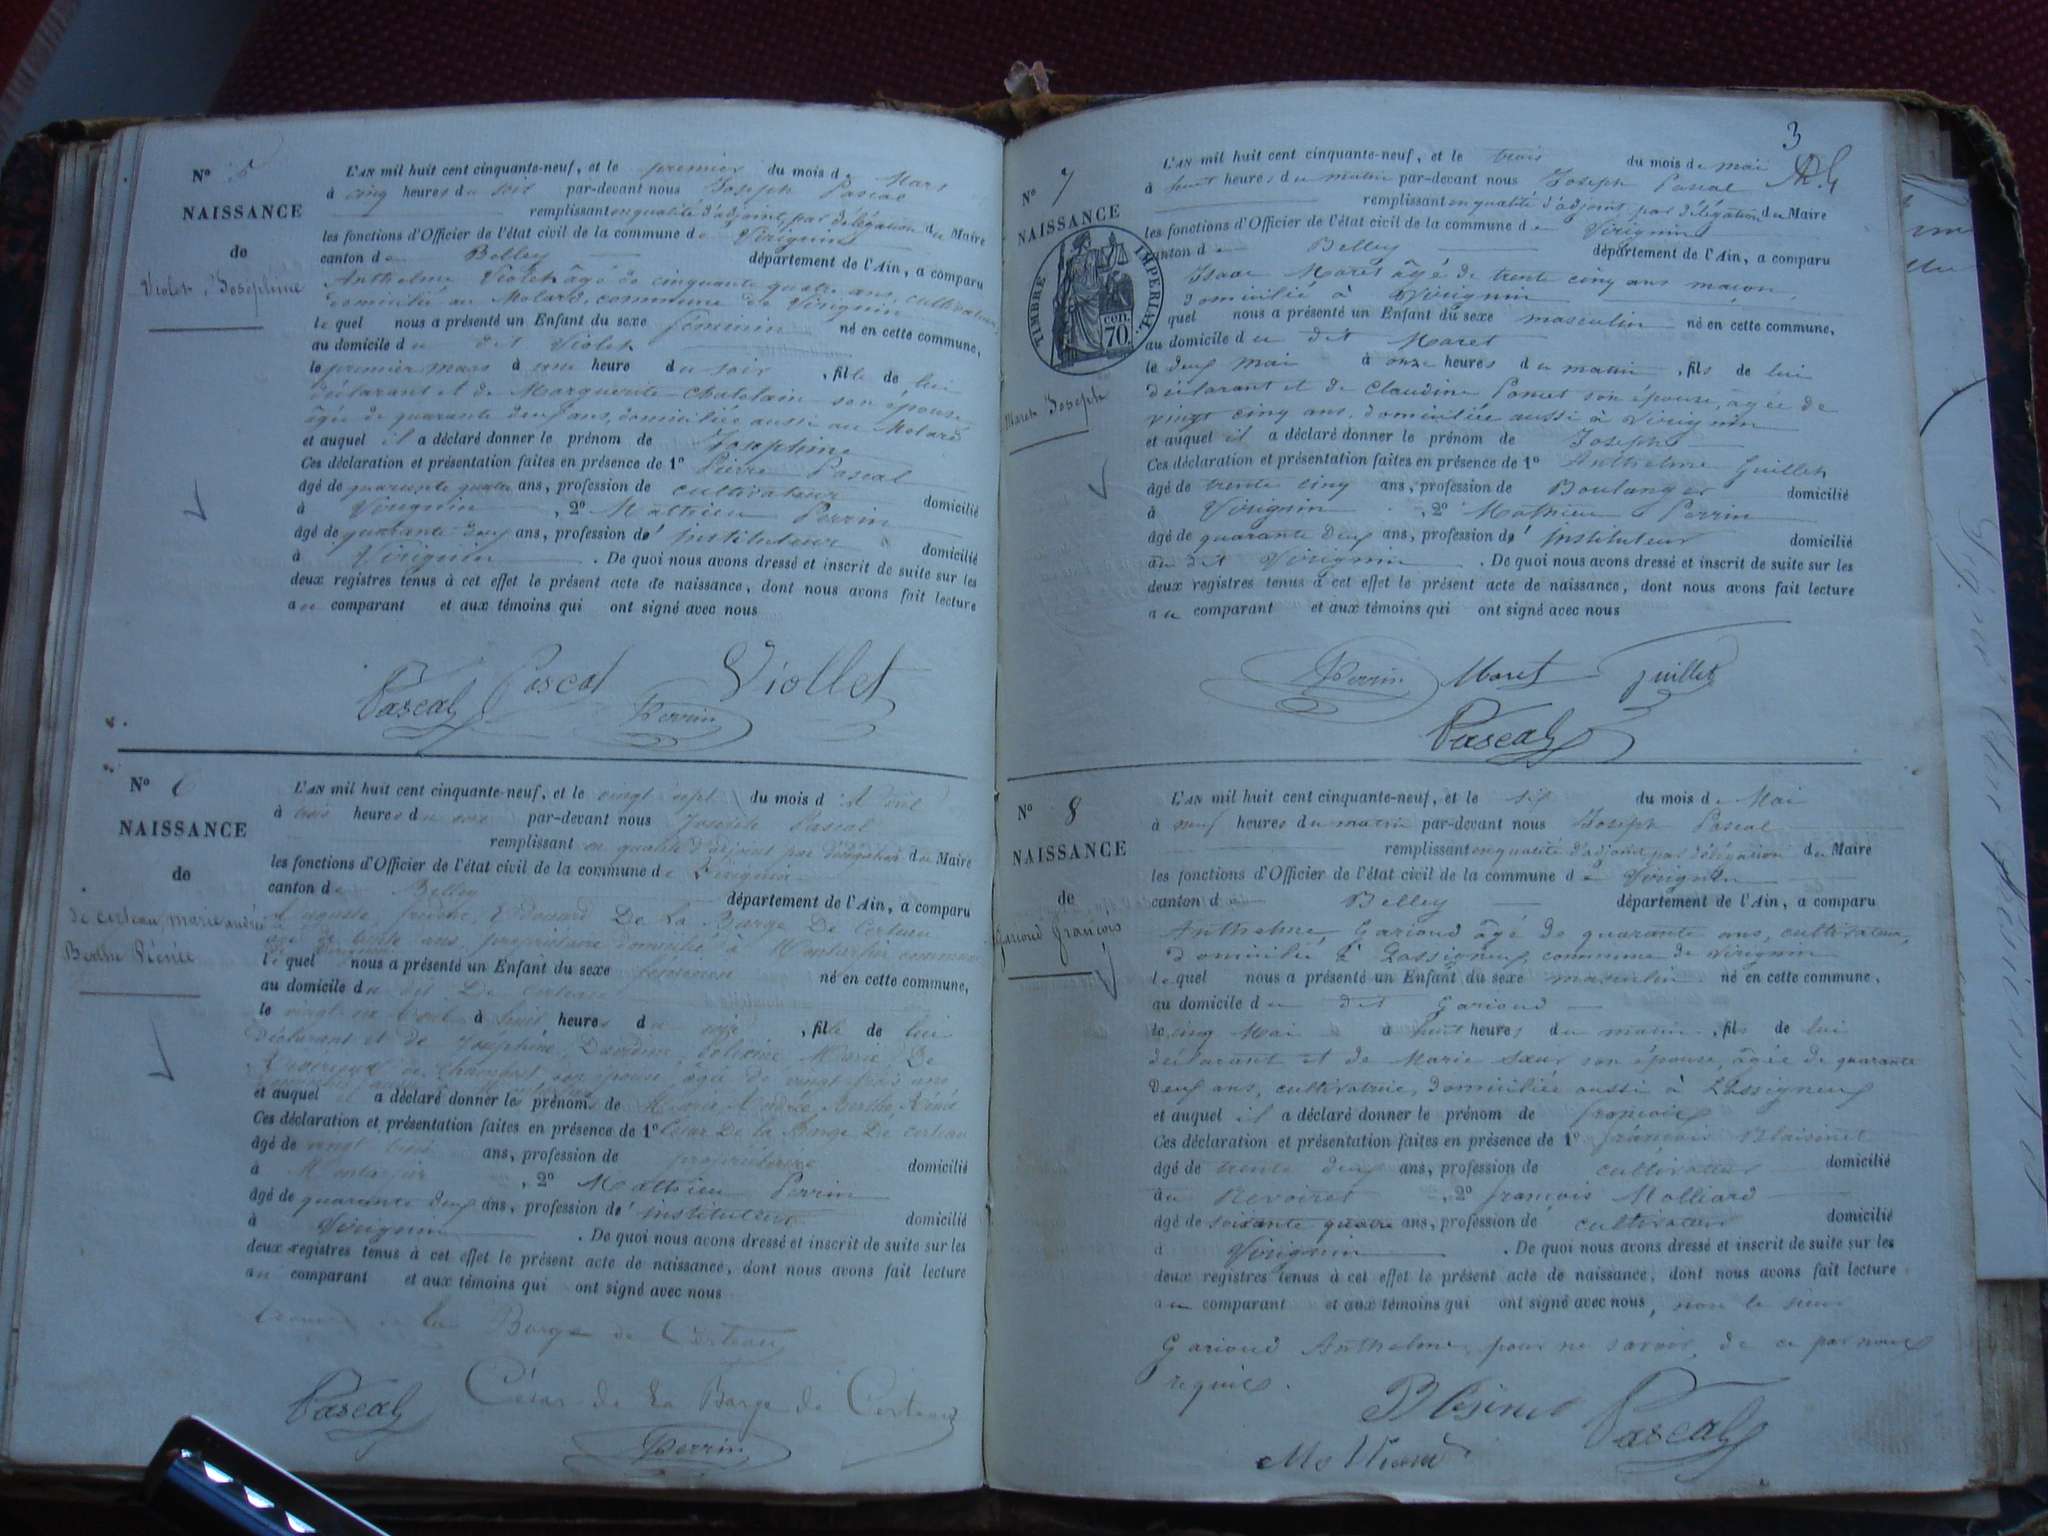 Nº 5
NAISSANCE
de
Violet, Josephine
L'AN mil huit cent cinquante-neuf, et le premier du mois de Mars
à cinq heures du soir par-devant nous Joseph Pascal
remplissant en qualité d'adjoint, par délégation du Maire
les fonctions d'Officier de l'état civil de la commune de Virignin
canton de Belley département de l'Ain, a comparu
Anthelme Violet âgé de cinquante quatre ans, cultivateur,
domicilié au Molard, commune de Virignin
lequel nous a présenté un Enfant du sexe féminin né en cette commune,
au domicile du dit Violet
le premier mars à une heure du soir, fille de lui
déclarant et de Marguerite Chatelain son épouse,
âgée de quarante deux ans, domiciliée aussi au Molard
et auquel il a déclaré donner le prénom de Josephine
Ces déclaration et présentation faites en présence de 1º Pierre Pascal
âgé de quarante quatre ans, profession de cultivateur domicilié
à Virignin, 2º Mathieu Perrin
âgé de quarante deux ans, profession d' instituteur domicilié
à Virignin. De quoi nous avons dressé et inscrit de suite sur les
deux registres tenus à cet effet le présent acte de naissance, dont nous avons fait lecture
au comparant et aux témoins qui ont signé avec nous
Pascal Pascal Viollet
Perrin
Nº 6
NAISSANCE
de
de Certeau, marie andrée
Berthe Rénée
L'AN mil huit cent cinquante-neuf, et le vingt sept du mois d'Avril
à trois heures du soir par-devant nous Joseph Pascal
remplissant en qualité d'adjoint par délégation du Maire
les fonctions d'Officier de l'état civil de la commune de Virignin
canton de Belley département de l'Ain, a comparu
Auguste, Edouard De La Barge De Certeau
âgé de trente ans, propriétaire domicilié à commune
lequel nous a présenté un Enfant du sexe féminin né en cette commune,
au domicile du dit De Certeau
le vingt six avril à huit heures du soir, fille de lui
déclarant et de Joséphine, Marie De
son épouse, âgée de vingt trois ans,
et auquel a déclaré donner les prénoms de Marie Andrée Berthe Rénée
Ces déclaration et présentation faites en présence de 1º César De la Barge De Certeau
âgé de vingt ans, profession de propriétaire domicilié
à, 2º Mathieu Perrin
âgé de quarante deux ans, profession d' instituteur domicilié
à Virignin. De quoi nous avons dressé et inscrit de suite sur les
deux registres tenus à cet effet le présent acte de naissance, dont nous avons fait lecture
au comparant et aux témoins qui ont signé avec nous
de la Barge de Certeau
Pascal César de la Barge de Certeau
Perrin
3
Nº 7
NAISSANCE
TIMBRE IMPERIAL
70 cen.
Maret Joseph
L'AN mil huit cent cinquante-neuf, et le trois du mois de mai
à huit heures du matin par-devant nous Joseph Pascal
remplissant en qualité d'adjoint par délégation du Maire
les fonctions d'Officier de l'état civil de la commune de Virignin
canton de Belley département de l'Ain, a comparu
Isaac Maret âgé de trente cinq ans maçon,
domicilié à Virignin
quel nous a présenté un Enfant du sexe masculin né en cette commune,
au domicile du dit Maret
le deux mai à onze heures du matin, fils de lui
déclarant et de Claudine Poncet son épouse, agée de
vingt cinq ans, domiciliée aussi à Virignin
et auquel il a déclaré donner le prénom de Joseph
Ces déclaration et présentation faites en présence de 1º Anthelme Guillet
âgé de trente cinq ans, profession de Boulanger domicilié
à Virignin, 2º Mathieu Perrin
âgé de quarante deux ans, profession d' instituteur domicilié
au dit Virignin. De quoi nous avons dressé et inscrit de suite sur les
deux registres tenus à cet effet le présent acte de naissance, dont nous avons fait lecture
au comparant et aux témoins qui ont signé avec nous
Perrin Maret Guillet
Pascal
Nº 8
NAISSANCE
de
Garioud François
L'AN mil huit cent cinquante-neuf, et le six du mois de Mai
à neuf heures du matin par-devant nous Joseph Pascal
remplissant en qualité d'adjoint, par délégation du Maire
les fonctions d'Officier de l'état civil de la commune de Virignin
canton de Belley département de l'Ain, a comparu
Anthelme Garioud âgé de quarante ans, cultivateur,
domicilié à Lassigneux, commune de Virignin
lequel nous a présenté un Enfant du sexe masculin né en cette commune,
au domicile du dit Garioud
le cinq Mai à huit heures du matin, fils de lui
déclarant et de Marie son épouse, âgée de quarante
deux ans, cultivatrice, domiciliée aussi à Lassigneux
et auquel il a déclaré donner le prénom de françois
Ces déclaration et présentation faites en présence de 1º françois Blaisinet
âgé de trente deux ans, profession de cultivateur domicilié
au Revoiret, 2º françois Molliard
âgé de soixante quatre ans, profession de cultivateur domicilié
à Virignin. De quoi nous avons dressé et inscrit de suite sur les
deux registres tenus à cet effet le présent acte de naissance, dont nous avons fait lecture
au comparant et aux témoins qui ont signé avec nous, non le sieur
Garioud Anthelme, pour ne savoir, de ce par nous
requis.
Blesinet Pascal
Molliard